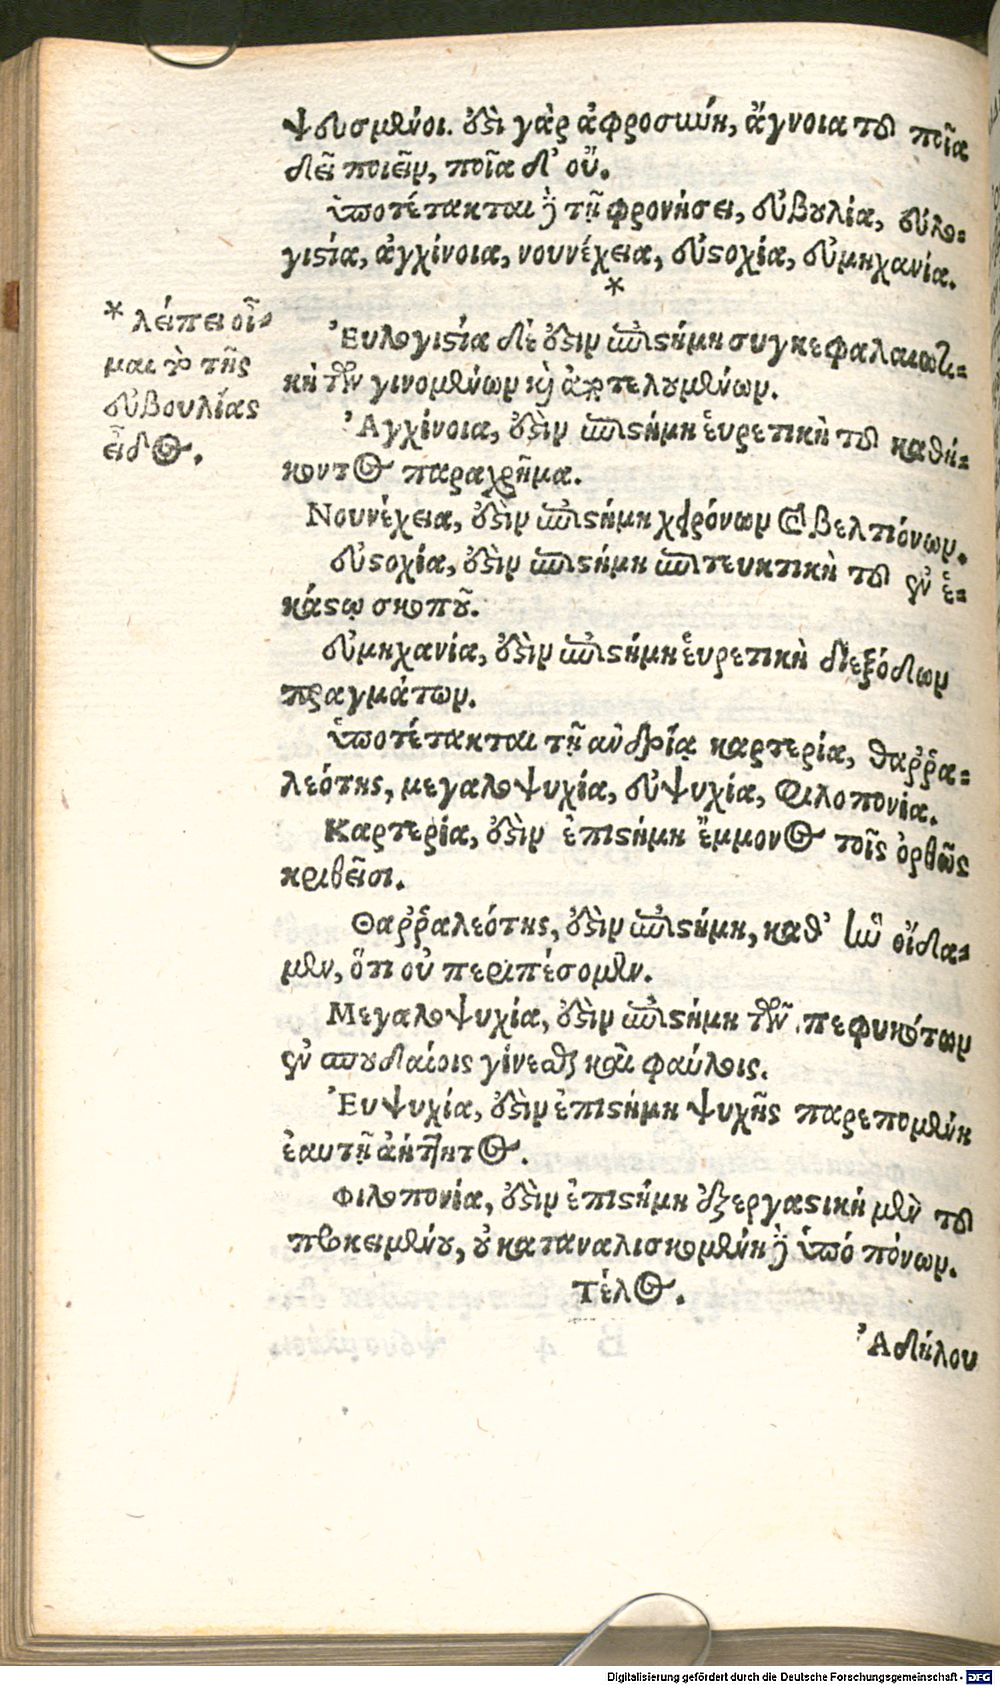 ψευσμένοι. ἐστὶ γὰρ ἀφροσύνη, ἄγνοια τοῦ ποῖα
δεῖ ποιεῖν, ποῖα δ' οὔ.
ὑποτέτακται ἢ τῇ φρονήσει, εὐβουλία, εὐλο-
γιστία, ἀγχίνοια, νουνέχεια, εὐστοχία, εὐμηχανία.
*
* λείπει οἶ-
μαι τὸ τῆς
εὐβουλίας
εἶδος.
Ἐυλογιστία δέ ἐστιν ἐπιστήμη συγκεφαλαιωτι-
κὴ τῶν γινομένων κὶ ἀποτελουμένων.
Ἀγχίνοια, ἐστὶν ἐπιστήμη εὑρετικὴ τοῦ καθή-
κοντος παραχρῆμα.
Νουνέχεια, ἐστὶν ἐπιστήμη χειρόνων καὶ βελτιόνων.
εὐστοχία, ἐστὶν ἐπιστήμη ἐπιτευκτικὴ τοῦ ἐν ἑ-
κάστῳ σκοποῦ.
εὐμηχανία, ἐστὶν ἐπιστήμη εὑρετικὴ διεξόδων
πραγμάτων.
ὑποτέτακται τῇ ανδρίᾳ καρτερία, θαῤῥα-
λεότης, μεγαλοψυχία, εὐψυχία, φιλοπονία.
Καρτερία, ἐστὶν ἐπιστήμη ἔμμονος τοῖς ὀρθῶς
κριθεῖσι.
Θαῤῥαλεότης, ἐστὶν ἐπιστήμη, καθ' ἣν οἴδα-
μεν, ὅτι οὐ περιπέσομεν.
Μεγαλοψυχία, ἐστὶν ἐπιστήμη τῶν πεφυκότων
ἐν σπουδαίοις γίνεσθαι καὶ φαύλοις.
Ἐυψυχία, ἐστὶν ἐπιστήμη ψυχῆς παρεπομένη
ἑαυτῇ ἀήττητος.
Φιλοπονία, ἐστὶν ἐπιστήμη ἐξεργαστικὴ μὲν τοῦ
προκειμένου, οὐ καταναλισκομένη ἢ ὑπό πόνων.
Τέλος.
Ἀδήλου
Digitalisierung gefördert durch die Deutsche Forschungsgemeinschaft - DFG